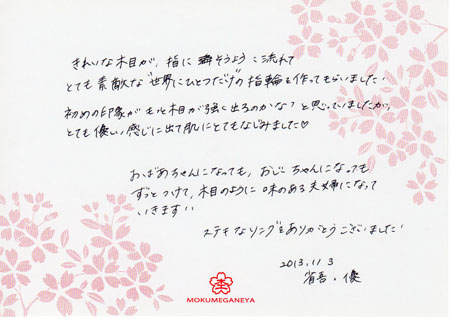 きれいな木目が、指に寄りそうように流れて
とても素敵な"世界にひとつだけ"の指輪を作ってもらいました!
初めの印象がもっと木目が強く出るのかな?と思っていましたが、
とても優しい感じに出て肌にとてもなじみました♡
おばあちゃんになっても、おじいちゃんになっても
ずっとつけて、木目のように味のある夫婦になって
いきます!!
ステキなリングをありがとうございました!
2013.11 3
省吾・優
MOKUMEGANEYA